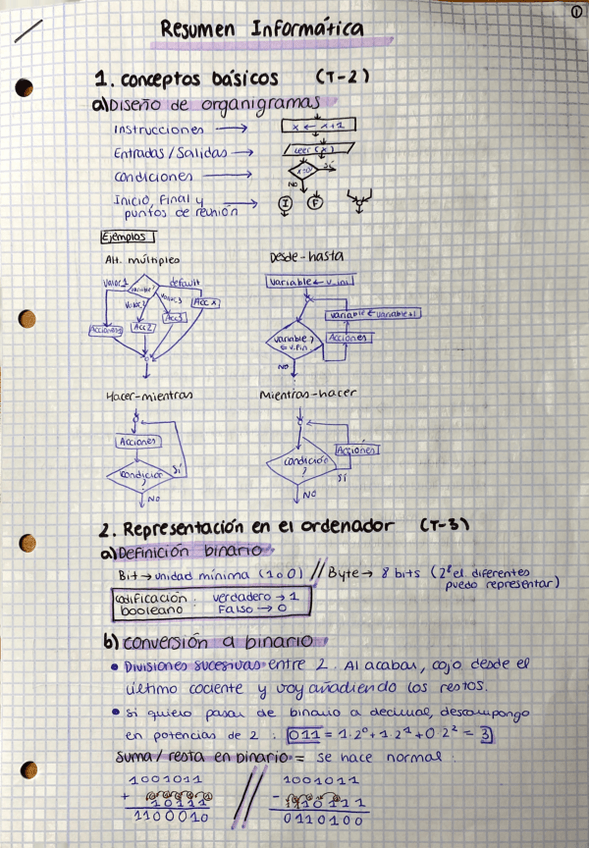 ①
Resumen Informática
1. conceptos básicos (T-2)
a) Diseño de organigramas
Instrucciones → x ← x+1
Entradas / Salidas → Leer (x)
condiciones → sí
NO
Inicio, Final y
puntos de reunión → I F
Ejemplos
Alt. múltiple
valor1 variable default
valor2 valor3 Acc x
Acciones Acc2 Acc3
Desde-hasta
variable ← v.ini
variable ← variable+1
variable ? Acciones
NO
Hacer-mientras
Acciones
condición ? sí
NO
Mientras-hacer
Acciones
condición ? sí
NO
2. Representación en el ordenador (T-3)
a) Definición binario
Bit → unidad mínima (1 o 0) // Byte → 8 bits (2⁸ el diferentes
puedo representar)
codificación : verdadero → 1
booleano Falso → 0
b) conversión a binario
• Divisiones sucesivas entre 2. Al acabar, cojo desde el
último cociente y voy añadiendo los restos.
• si quiero pasar de binario a decimal, descompongo
en potencias de 2 : 011 = 1·2⁰ + 1·2¹ + 0·2² = 3
Suma / resta en binario = se hace normal.
1001011 // 1001011
+ 10111 - 10111
1100010 0110100